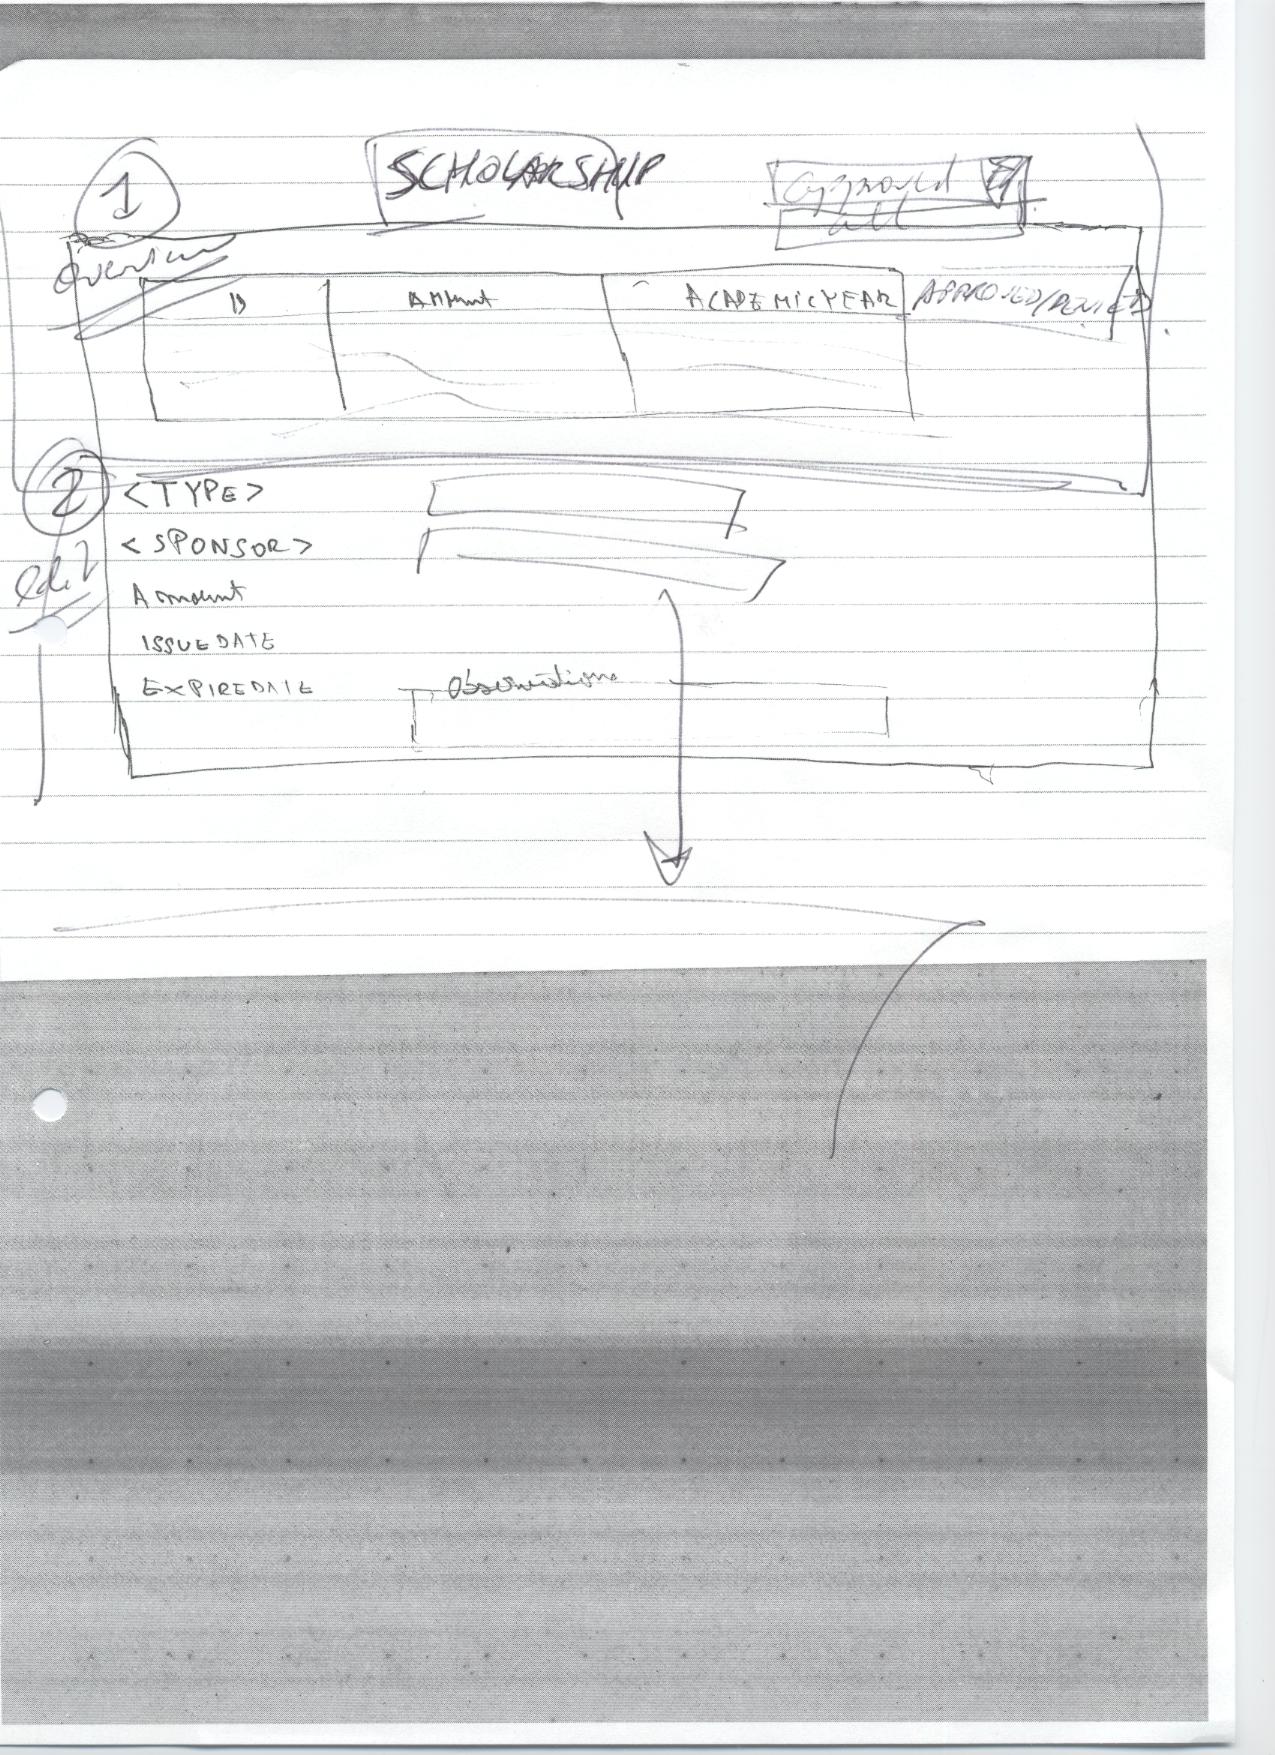 1
SCHOLARSHIP
approved
all
Overview
ID
Amount
ACADEMICYEAR
APPROVED/DENIED
2
<TYPE>
<SPONSOR>
edit
Amount
ISSUEDATE
EXPIREDATE
Observations